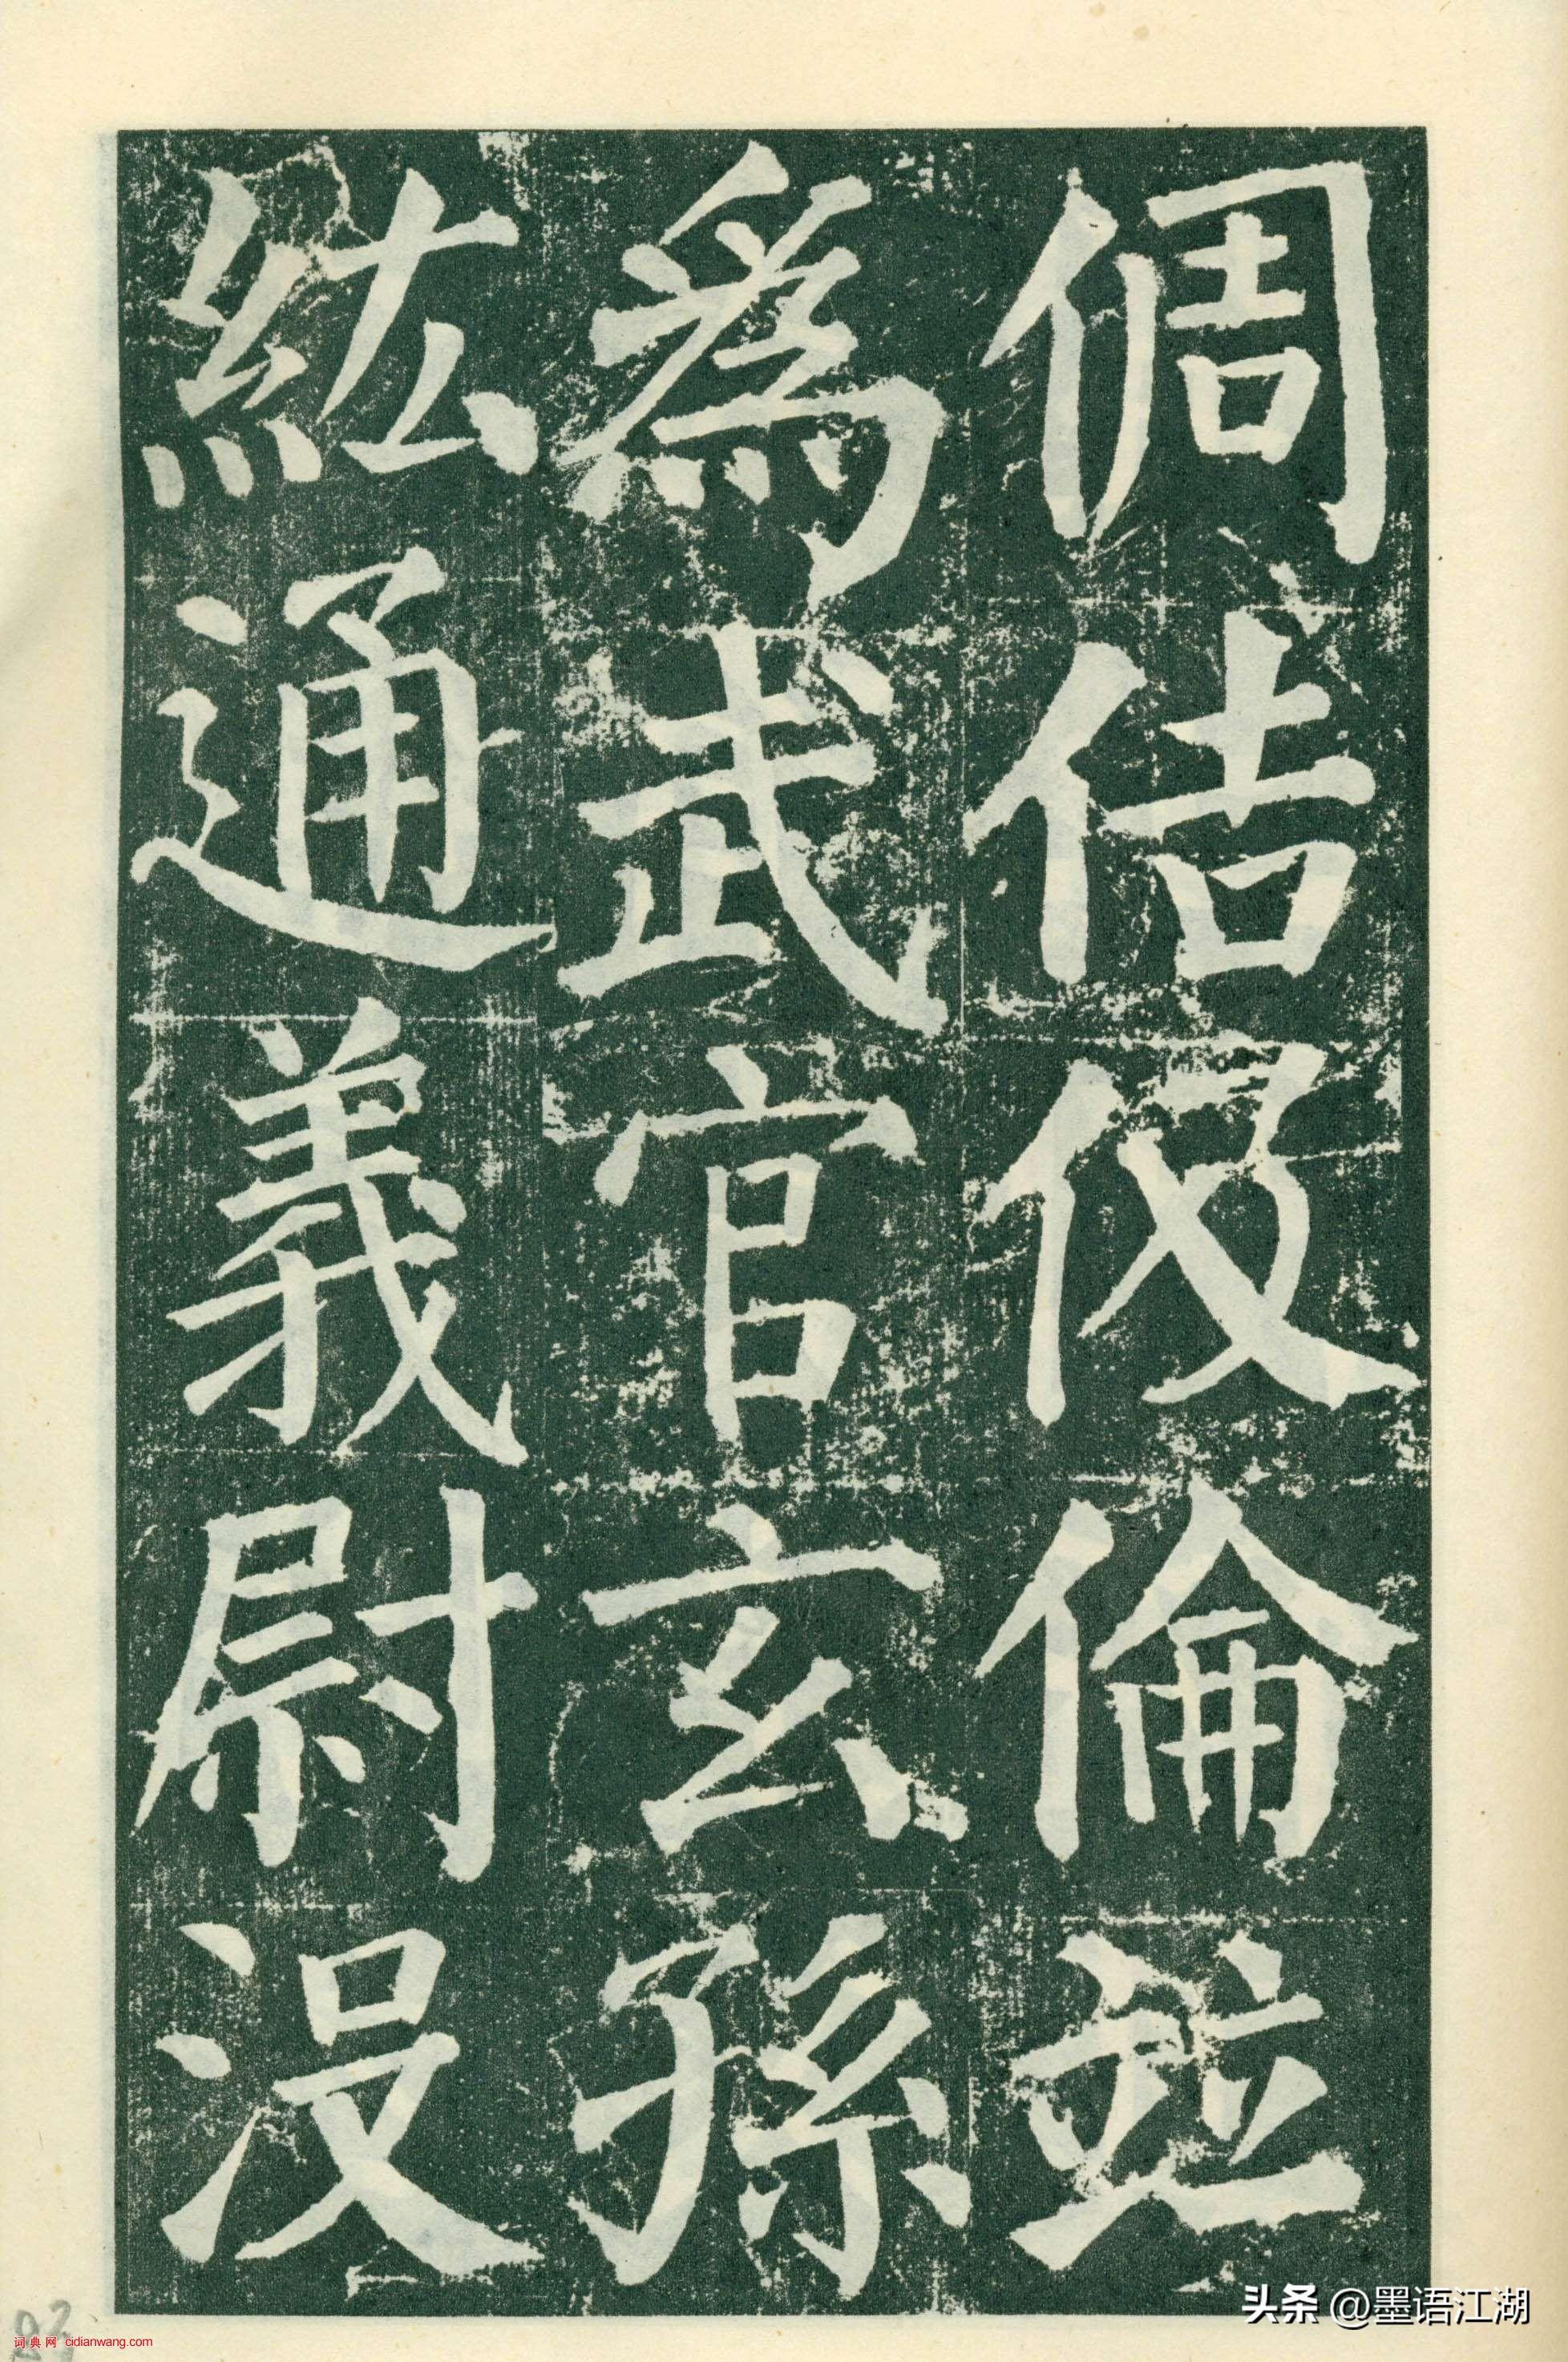 倜佶伋倫並
為武官玄孫
紘通義尉沒
头条 @墨语江湖
词典网 cidianwang.com